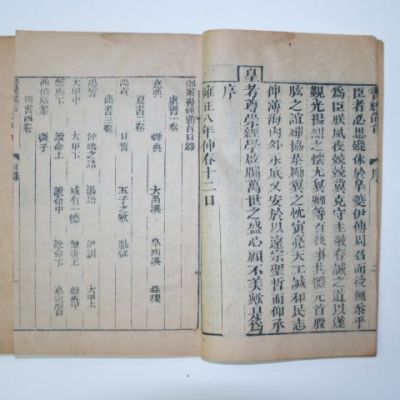 臣者必思媲休於皐夔伊傅周召而後無忝乎
為臣朕夙夜兢兢克守主敬存誠之道以遂
觀光揚烈之懷尤冀卿等百執事共體元首股
肱之誼協恭勵翼之忱寅亮天工諴和民志
俾薄海內外永底乂安於以遠宗聖哲而仰承
皇
考尊學經學啟牖萬世之盛心顧不美歟是為
序
雍正八年仲春十二日
虞書一卷
堯典 舜典 大禹謨 皐陶謨 益稷
夏書二卷
禹貢 甘誓 五子之歌 胤征
商書三卷
湯誓 仲虺之誥 湯誥 伊訓 太甲上
太甲中 太甲下 咸有一德 盤庚上 盤庚中
盤庚下 說命上 說命中 說命下 高宗肜日
西伯戡黎 微子
周書四卷